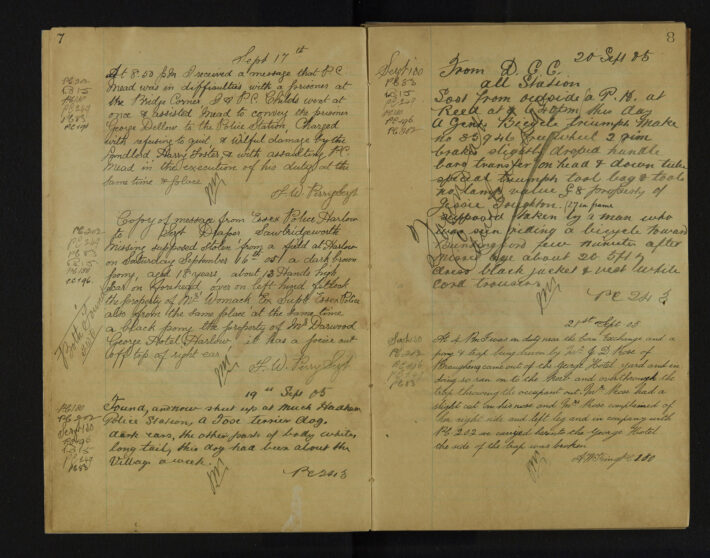 7
Sept 17th
At 8.50 pm I received a message that P.C.
Mead was in difficulties with a prisoner at
the Bridge Corner, I & P.C. Childs went at
once & assisted Mead to convey the prisoner
George Dellow to the Police Station, Charged
with refusing to quit & Wilful damage by the
Landlord Harry Foster & with assaulting P.C.
Mead in the execution of his duty at the
same time & place.
F. W. Perry Sergt
Copy of message from Essex Police Harlow
to Sergt Draper Sawbridgeworth
Missing supposed Stolen from a field at Harlow
on Saturday September 16th 05 a dark brown
pony, aged 18 years, about 13 Hands high
scar on forehead, over on left hind fetlock
the property of Mr Womack Ex Supt Essex Police
also from the same place at the same time
a black pony the property of Mr Darwood
George Hotel Harlow, it has a piece cut
off top of right ear.
F. W. Perry Sergt
Both Found
19th Sept 05
Found, and now shut up at Much Hadham
Police Station, a Fox terrier dog,
dark ears, the other parts of body white,
long tail, this dog had been about the
Village a week.
PC 243
8
20 Sept 05
From D. C. C.
all Station
Lost from outside a P. H. at
Reed at this day
A Gents Bicycle Triumph Make
no 83946 free wheel 2 rim
brakes slightly droped handle
bars transfer on head & down tube
special triumph tool bag & tools
no lamp value £8 property of
Jessie Boughton. 27 in frame
supposed taken by a man who
was seen riding a bicycle toward
Buntingford few minutes after
missed age about 20 5ft 7
dress black jacket & vest white
cord trousers
PC 243
21st Sept 05
At 4 Pm I was on duty near the Corn Exchange and a
pony & trap being driven by Mrs G. D. Rose of
Braughing came out of the George Hotel yard and in
doing so ran on to the Kerb and overthrough the
trap throwing the occupant out Mrs Rose had a
slight cut on her nose and Mrs Rose complained of
her right side and left leg and in company with
PC 202 we carried her into the George Hotel
the side of the trap was broken